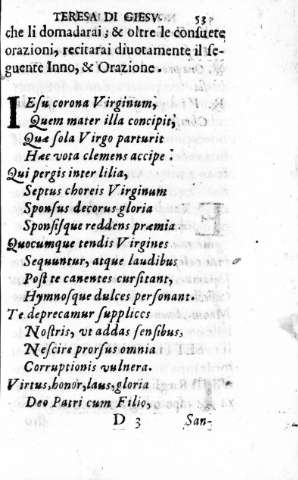 TERESA DI GIESV. 53
che li domadarai; & oltre le consuete
orazioni, recitarai diuotamente il se-
guente Inno, & Orazione.
IEsu corona Virginum,
Quem mater illa concipit,
Quæ sola Virgo parturit
Hæc vota clemens accipe:
Qui pergis inter lilia,
Septus choreis Virginum
Sponsus decorus gloria
Sponsisque reddens præmia.
Quocumque tendis Virgines
Sequuntur, atque laudibus
Post te canentes cursitant,
Hymnosque dulces personant.
Te deprecamur supplices
Nostris, vt addas sensibus,
Nescire prorsus omnia
Corruptionis vulnera.
Virtus, honor, laus, gloria
Deo Patri cum Filio,
D 3 San-